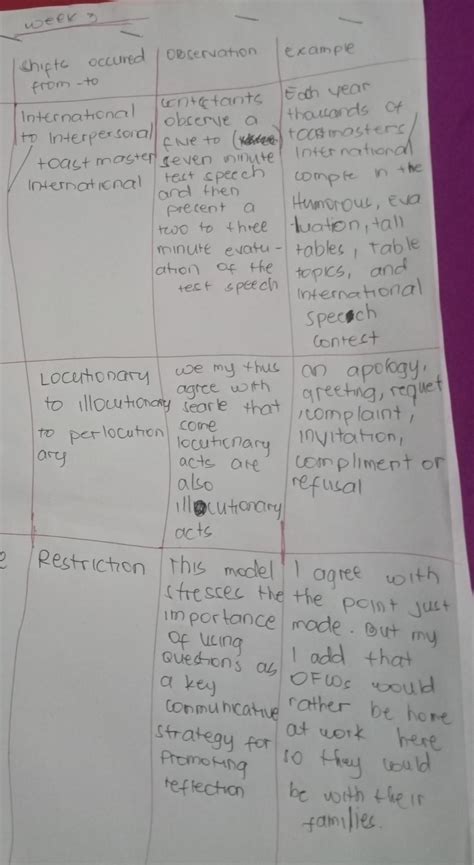 week 3
shifts occured
from -to
observation
example
International
to Interpersonal
toastmaster
International
contestants
observe a
five to
seven minute
test speech
and then
precent a
two to three
minute evalu-
ation of the
test speech
Each year
thousands of
toastmasters
International
compte in the
Humorous, eva
luation, tall
tables, table
topics, and
International
speech
contest
Locutionary
to illocutionary
to perlocution
ary
we my thus
agree with
searle that
come
locutionary
acts are
also
illocutionary
acts
an apology,
greeting, requet
,complaint,
invitation,
compliment or
refusal
Restriction
This model
stresses the
importance
of using
questions as
a key
communicative
strategy for
promoting
reflection
I agree with
the point just
made. But my
I add that
OFWs would
rather be home
at work here
so they would
be with their
families.